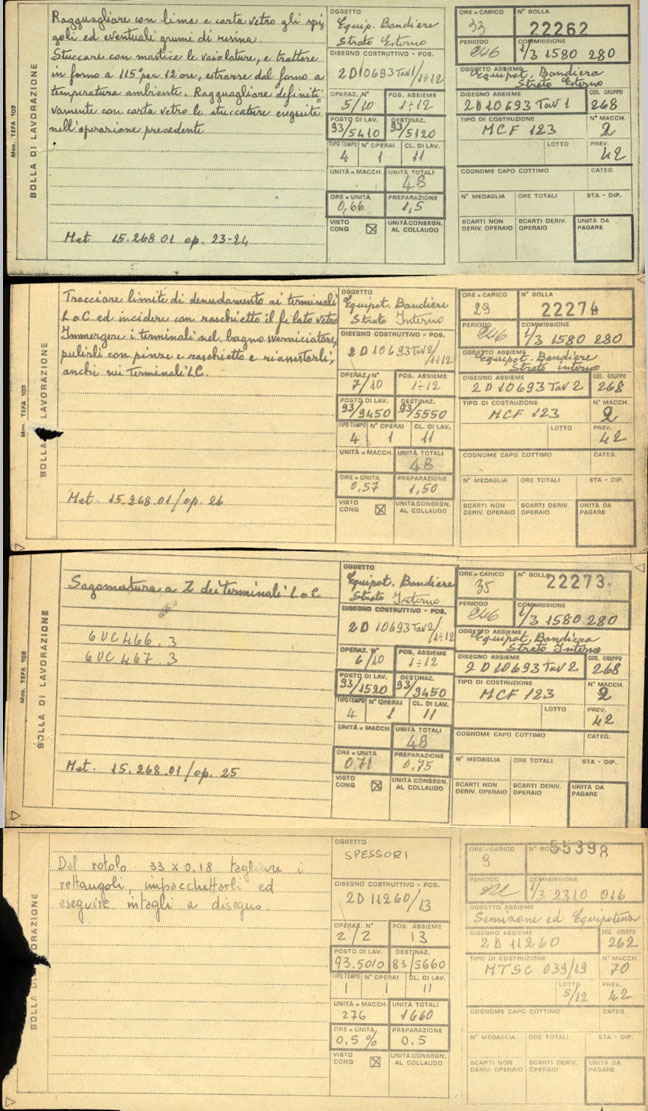 Mod. TEFA 103
BOLLA DI LAVORAZIONE
Ragguagliare con lima e carta vetro gli spi
goli ed eventuali grumi di resina.
Stuccare con mastice le vaiolature, e trattare
in forno a 115° per 12 ore, estrarre dal forno a
temperatura ambiente. Ragguagliare definiti=
vamente con carta vetro le stuccature eseguite
nell'operazione precedente
Met 15.268.01 op. 23-24
OGGETTO
Equip. Bandiere
Strato Esterno
DISEGNO COSTRUTTIVO - POS.
2D10693 Tav1/1÷12
OPERAZ. N° POS. ASSIEME
5/10 1÷12
POSTO DI LAV. DESTINAZ.
93/5410 93/5120
TIPO TEMPO N° OPERAI CL. DI LAV.
4 1 11
UNITÀ × MACCH. UNITÀ TOTALI
48
ORE × UNITÀ PREPARAZIONE
0,66 1,5
VISTO CONG UNITÀ CONSEGN. AL COLLAUDO
ORE × CARICO N° BOLLA
33 22262
PERIODO COMMISSIONE
246 1/3 1580 280
OGGETTO ASSIEME
Equipot. Bandiera
Strato Esterno
DISEGNO ASSIEME COD. GRUPPO
2D10693 Tav 1 268
TIPO DI COSTRUZIONE N° MACCH.
MCF 123 2
LOTTO PREV.
42
COGNOME CAPO COTTIMO CATEG.
N° MEDAGLIA ORE TOTALI STA - DIP.
SCARTI NON DERIV. OPERAIO SCARTI DERIV. OPERAIO UNITÀ DA PAGARE
Mod. TEFA 103
BOLLA DI LAVORAZIONE
Tracciare limite di denudamento ai terminali
L o C ed incidere con raschietto il filato vetro
Immergere i terminali nel bagno sverniciatore,
pulirli con pinze e raschietto e riassettarli,
anche nei terminali LC.
Met. 15.268.01/op. 26
OGGETTO
Equipot. Bandiere
Strato Interno
DISEGNO COSTRUTTIVO - POS.
2D10693 Tav2/1÷12
OPERAZ. N° POS. ASSIEME
7/10 1÷12
POSTO DI LAV. DESTINAZ.
93/9450 93/5550
TIPO TEMPO N° OPERAI CL. DI LAV.
4 1 11
UNITÀ × MACCH. UNITÀ TOTALI
48
ORE × UNITÀ PREPARAZIONE
0,57 1,50
VISTO CONG UNITÀ CONSEGN. AL COLLAUDO
ORE × CARICO N° BOLLA
29 22274
PERIODO COMMISSIONE
246 1/3 1580 280
OGGETTO ASSIEME
Equipot. Bandiere
Strato interno
DISEGNO ASSIEME COD. GRUPPO
2D10693 Tav 2 268
TIPO DI COSTRUZIONE N° MACCH.
MCF 123 2
LOTTO PREV.
42
COGNOME CAPO COTTIMO CATEG.
N° MEDAGLIA ORE TOTALI STA - DIP.
SCARTI NON DERIV. OPERAIO SCARTI DERIV. OPERAIO UNITÀ DA PAGARE
Mod. TEFA 103
BOLLA DI LAVORAZIONE
Sagomatura a Z dei terminali L o C
6UC466.3
6UC467.3
Met. 15.268.01/op. 25
OGGETTO
Equipot. Bandiere
Strato Interno
DISEGNO COSTRUTTIVO - POS.
2D10693 Tav2/1÷12
OPERAZ. N° POS. ASSIEME
6/10 1÷12
POSTO DI LAV. DESTINAZ.
93/1520 93/9450
TIPO TEMPO N° OPERAI CL. DI LAV.
4 1 11
UNITÀ × MACCH. UNITÀ TOTALI
48
ORE × UNITÀ PREPARAZIONE
0,71 0,75
VISTO CONG UNITÀ CONSEGN. AL COLLAUDO
ORE × CARICO N° BOLLA
35 22273
PERIODO COMMISSIONE
246 1/3 1580 280
OGGETTO ASSIEME
Equipot. Bandiera
Strato Interno
DISEGNO ASSIEME COD. GRUPPO
2D10693 Tav 2 268
TIPO DI COSTRUZIONE N° MACCH.
MCF 123 2
LOTTO PREV.
42
COGNOME CAPO COTTIMO CATEG.
N° MEDAGLIA ORE TOTALI STA - DIP.
SCARTI NON DERIV. OPERAIO SCARTI DERIV. OPERAIO UNITÀ DA PAGARE
BOLLA DI LAVORAZIONE
Dal rotolo 33 x 0,18 tagliare i
rettangoli, impacchettarli ed
eseguire intagli a disegno.
OGGETTO
SPESSORI
DISEGNO COSTRUTTIVO - POS.
2D11260/13
OPERAZ. N° POS. ASSIEME
2/2 13
POSTO DI LAV. DESTINAZ.
93.5010 83/5660
TIPO TEMPO N° OPERAI CL. DI LAV.
1 1 11
UNITÀ × MACCH. UNITÀ TOTALI
276 1660
ORE × UNITÀ PREPARAZIONE
0,5 % 0.5
VISTO CONG UNITÀ CONSEGN. AL COLLAUDO
ORE × CARICO N° BOLLA
9 55398
PERIODO COMMISSIONE
1/3 2310 016
OGGETTO ASSIEME
ed Equipotenz
DISEGNO ASSIEME COD. GRUPPO
2D 11260 262
TIPO DI COSTRUZIONE N° MACCH.
MTSC 039/19 70
LOTTO PREV.
5/12 42
COGNOME CAPO COTTIMO CATEG.
N° MEDAGLIA ORE TOTALI STA - DIP.
SCARTI NON DERIV. OPERAIO SCARTI DERIV. OPERAIO UNITÀ DA PAGARE